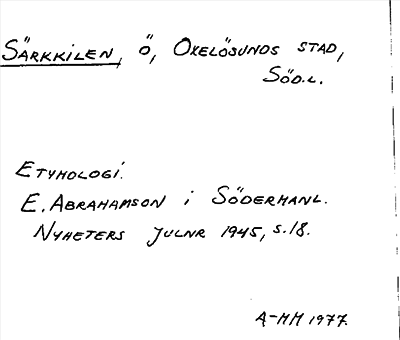 Särkkilen, ö, Oxelösunds stad,
Söd.l.
Etymologi.
E. Abrahamson i Södermanl.
Nyheters julnr 1945, s.18.
A-MM 1977.